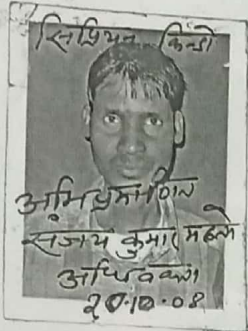 सिप्रियन किन्डो
अभिप्रमाणित
संजय कुमार महतो
अधिवक्ता
20-10-08